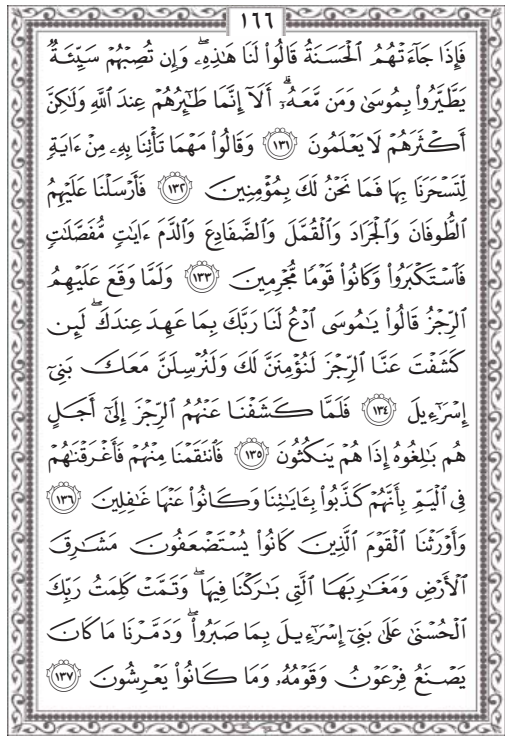 ١٦٦
فَإِذَا جَآءَتْهُمُ ٱلْحَسَنَةُ قَالُوا۟ لَنَا هَـٰذِهِۦ ۖ وَإِن تُصِبْهُمْ سَيِّئَةٌ
يَطَّيَّرُوا۟ بِمُوسَىٰ وَمَن مَّعَهُۥٓ ۗ أَلَآ إِنَّمَا طَـٰٓئِرُهُمْ عِندَ ٱللَّهِ وَلَـٰكِنَّ
أَكْثَرَهُمْ لَا يَعْلَمُونَ ١٣١ وَقَالُوا۟ مَهْمَا تَأْتِنَا بِهِۦ مِنْ ءَايَةٍ
لِّتَسْحَرَنَا بِهَا فَمَا نَحْنُ لَكَ بِمُؤْمِنِينَ ١٣٢ فَأَرْسَلْنَا عَلَيْهِمُ
ٱلطُّوفَانَ وَٱلْجَرَادَ وَٱلْقُمَّلَ وَٱلضَّفَادِعَ وَٱلدَّمَ ءَايَـٰتٍ مُّفَصَّلَـٰتٍ
فَٱسْتَكْبَرُوا۟ وَكَانُوا۟ قَوْمًا مُّجْرِمِينَ ١٣٣ وَلَمَّا وَقَعَ عَلَيْهِمُ
ٱلرِّجْزُ قَالُوا۟ يَـٰمُوسَى ٱدْعُ لَنَا رَبَّكَ بِمَا عَهِدَ عِندَكَ ۖ لَئِن
كَشَفْتَ عَنَّا ٱلرِّجْزَ لَنُؤْمِنَنَّ لَكَ وَلَنُرْسِلَنَّ مَعَكَ بَنِىٓ
إِسْرَٰٓءِيلَ ١٣٤ فَلَمَّا كَشَفْنَا عَنْهُمُ ٱلرِّجْزَ إِلَىٰٓ أَجَلٍ
هُم بَـٰلِغُوهُ إِذَا هُمْ يَنكُثُونَ ١٣٥ فَٱنتَقَمْنَا مِنْهُمْ فَأَغْرَقْنَـٰهُمْ
فِى ٱلْيَمِّ بِأَنَّهُمْ كَذَّبُوا۟ بِـَٔايَـٰتِنَا وَكَانُوا۟ عَنْهَا غَـٰفِلِينَ ١٣٦
وَأَوْرَثْنَا ٱلْقَوْمَ ٱلَّذِينَ كَانُوا۟ يُسْتَضْعَفُونَ مَشَـٰرِقَ
ٱلْأَرْضِ وَمَغَـٰرِبَهَا ٱلَّتِى بَـٰرَكْنَا فِيهَا ۖ وَتَمَّتْ كَلِمَتُ رَبِّكَ
ٱلْحُسْنَىٰ عَلَىٰ بَنِىٓ إِسْرَٰٓءِيلَ بِمَا صَبَرُوا۟ ۖ وَدَمَّرْنَا مَا كَانَ
يَصْنَعُ فِرْعَوْنُ وَقَوْمُهُۥ وَمَا كَانُوا۟ يَعْرِشُونَ ١٣٧